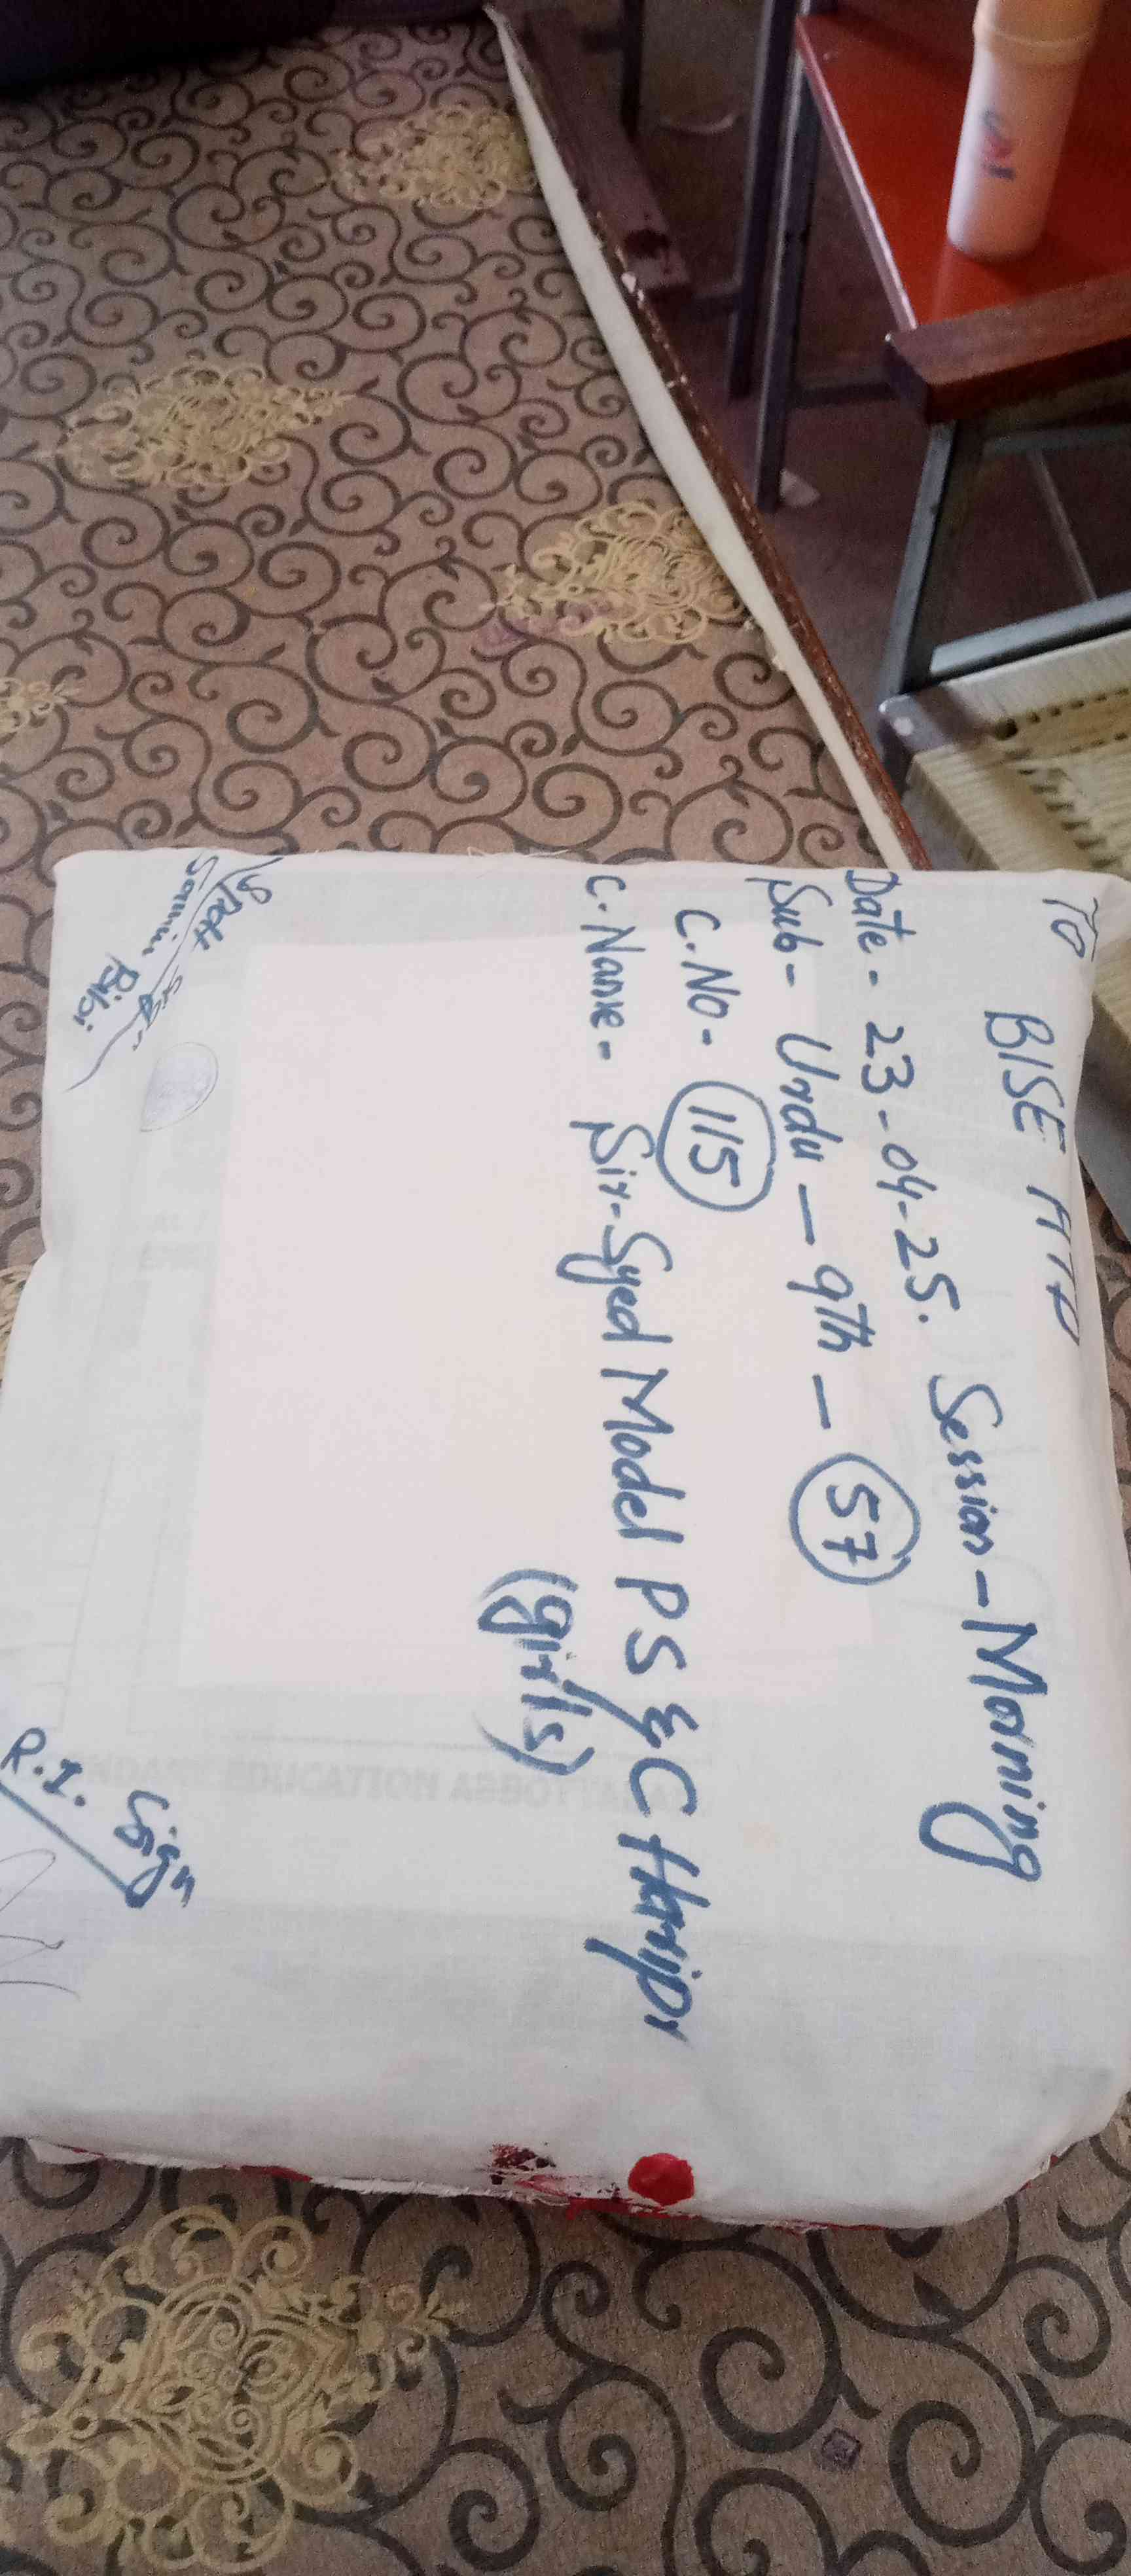 To
BISE ATD
Date - 23-04-25. Session - Morning
Sub - Urdu — 9th — 57
C.No - 115
C.Name - Sir-Syed Model PS & C Haripr
(girls)
Sign
Bibi
R.I. Sign
EDUCATION ABBOTTABAD